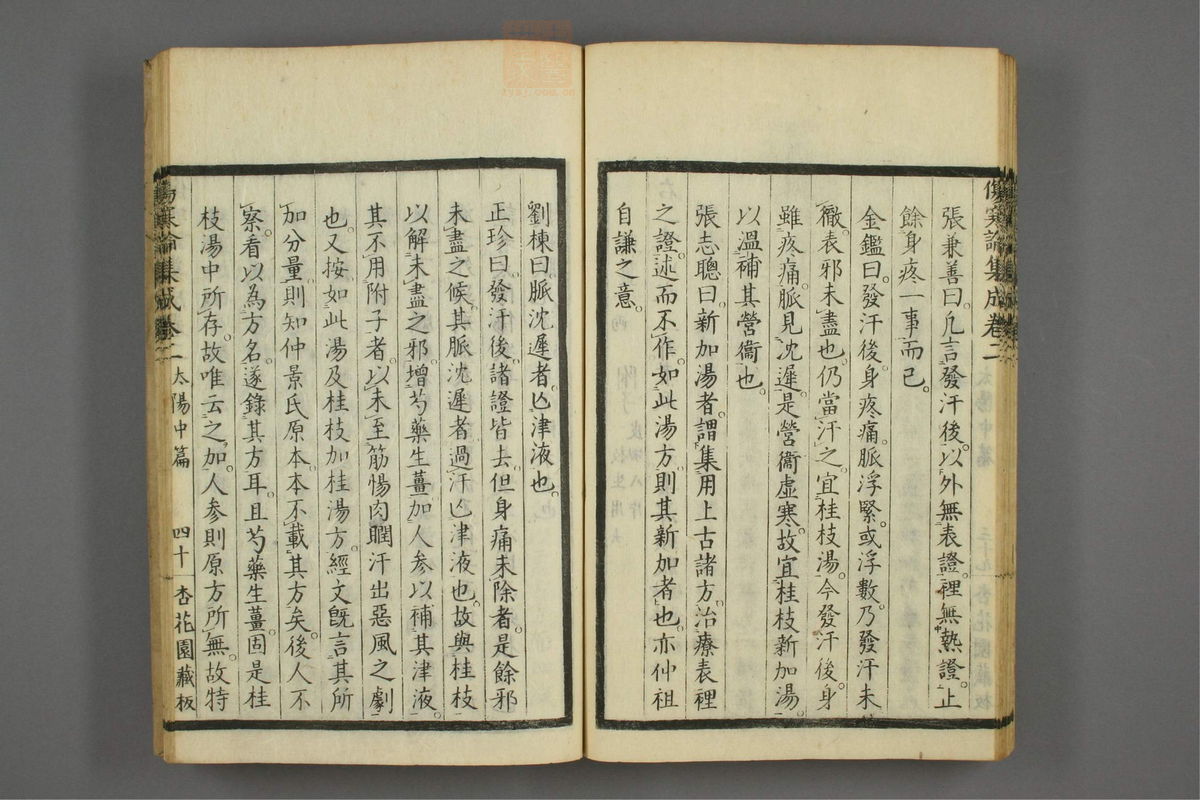 傷寒論集成卷二
張兼善曰凢言發汗後以外無表證裡無熱證止
餘身疼一事而已
金鑑曰發汗後身疼痛脈浮緊或浮數乃發汗未
徹表邪未盡也仍當汗之宜桂枝湯今發汗後身
雖疼痛脈見沈遲是營衞虛寒故宜桂枝新加湯
以溫補其營衞也
張志聰曰新加湯者謂集用上古諸方治療表裡
之證述而不作如此湯方則其新加者也亦仲祖
自謙之意
劉棟曰脈沈遲者亾津液也
正珍曰發汗後諸證皆去但身痛未除者是餘邪
未盡之候其脈沈遲者過汗亾津液也故與桂枝
以解未盡之邪增芍藥生薑加人參以補其津液
其不用附子者以未至筋惕肉瞤汗出惡風之劇
也又按如此湯及桂枝加桂湯方經文旣言其所
加分量則知仲景氏原本本不載其方矣後人不
察看以為方名遂錄其方耳且芍藥生薑固是桂
枝湯中所存故唯云之加人參則原方所無故特
傷寒論集成卷二 太陽中篇 四十一 杏花園藏板